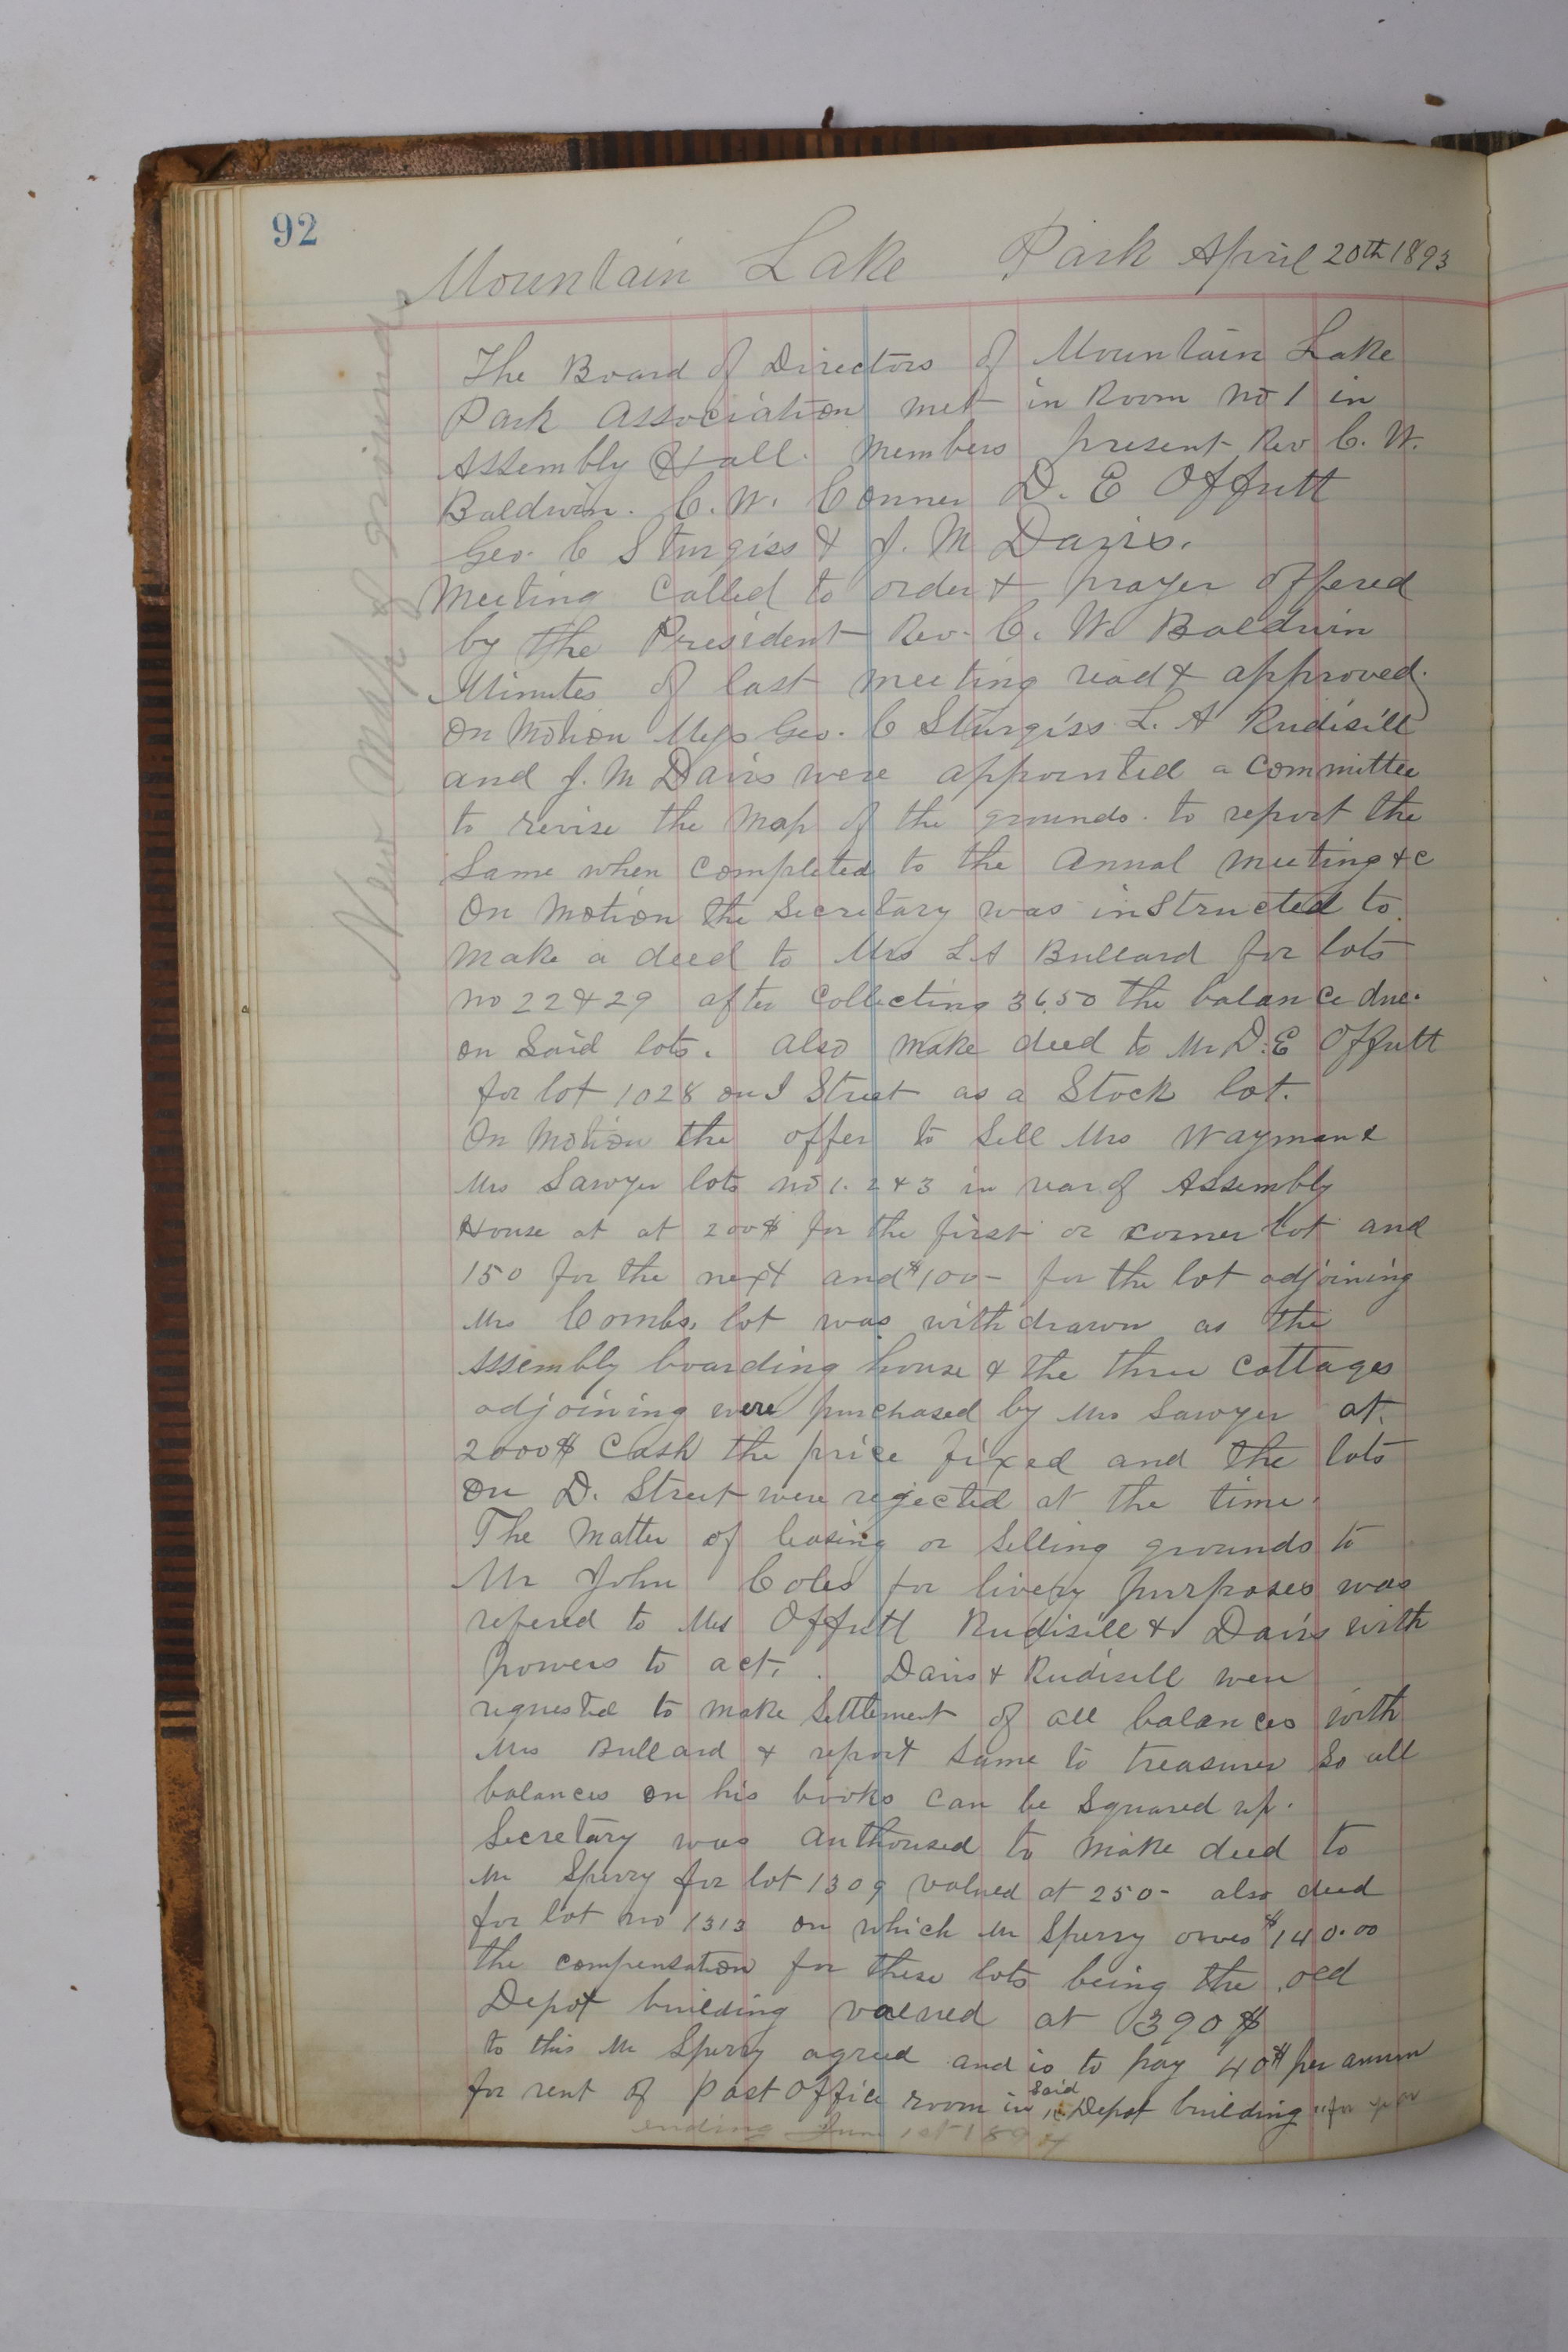 92
Mountain Lake Park April 20th 1893
New Map of grounds
The Board of Directors of Mountain Lake
Park Association met in Room no 1 in
Assembly Hall. Members present Rev C. W.
Baldwin. C. W. Conner D. E Offutt
Geo. C Sturgiss & J. M Davis.
Meeting Called to order & prayer offered
by the President Rev. C. W. Baldwin
Minutes of last meeting read & approved.
On Motion Geo. C Sturgiss L. A Rudisill
and J. M Davis were appointed a Committee
to revise the Map of the grounds. to report the
Same when Completed to the Annal Meeting &c
On Motion the Secretary was instructed to
Make a deed to Mrs L A Bullard for lots
no 22 & 29 after Collecting 36.50 the balance due.
on Said lots. also make deed to Mr D. E Offutt
for lot 1028 on I Street as a Stock lot.
On Motion the offer to Sell Mrs Wayman &
Mrs Sawyer lots no 1. 2 & 3 in rear of Assembly
House at at 200$ for the first or corner lot and
150 for the next and $100- for the lot adjoining
Mrs Combs lot was withdrawn as the
Assembly boarding house & the three Cottages
adjoining were purchased by Mrs Sawyer at
2000$ Cash the price fixed and the lots
on D. Street were rejected at the time.
The Matter of leasing or Selling grounds to
Mr John Coles for livery purposes was
refered to Offutt Rudisill & Davis with
Powers to act. Davis & Rudisill were
requested to make Settlement of all balances with
Mrs Bullard & report Same to treasurer So all
balances on his books Can be Squared up.
Secretary was authorised to make deed to
Mr Sperry for lot 1309 valued at 250- also deed
for lot no 1313 on which Mr Sperry owes $140.00
the compensation for these lots being the old
Depot building valued at 390$
to this Mr Sperry agreed and is to pay 40$ per annum
for rent of Post Office room in Said Depot building for year
ending June 1st 1894